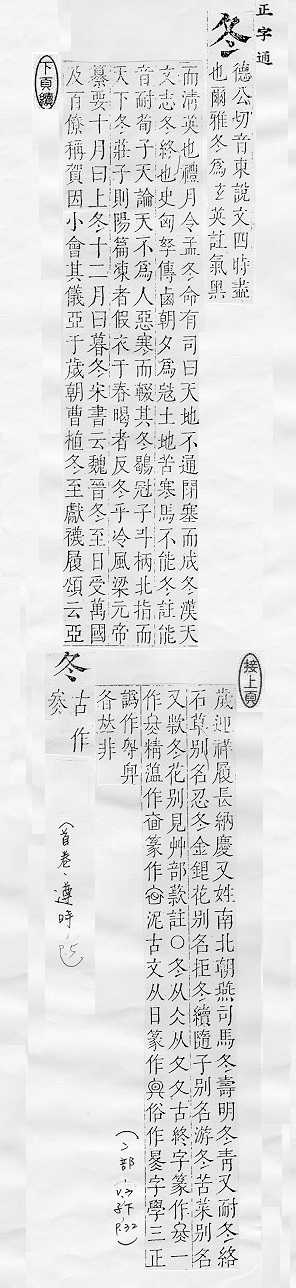 正字通
冬
德公切音東說文四時盡
也爾雅冬爲玄英註氣黑
而清英也禮月令孟冬命有司曰天地不通閉塞而成冬漢天
文志冬終也史匈奴傳鹵朝夕爲冦土地苦寒馬不能冬註能
音耐荀子天論天不爲人惡寒而輟其冬鶡冠子斗柄北指而
天下冬莊子則陽篇凍者假衣于春暍者反冬乎冷風梁元帝
纂要十月曰上冬十二月曰暮冬宋書云魏晉冬至日受萬國
及百僚稱賀因小會其儀亞于歲朝曹植冬至獻襪履頌云亞
下頁續
接上頁
歲迎祥履長納慶又姓南北朝燕司馬冬壽明冬青又耐冬絡
石草别名忍冬金銀花别名拒冬續隨子别名游冬苦菜别名
又款冬花别見艸部款註○冬从仌从夂夂古終字篆作 一
作 精薀作 篆作 泥古文从日篆作 俗作 字學三正
譌作
各 非
冬
古作
(首卷、遵時、P.5)
(冫部、V.子下、P.32)